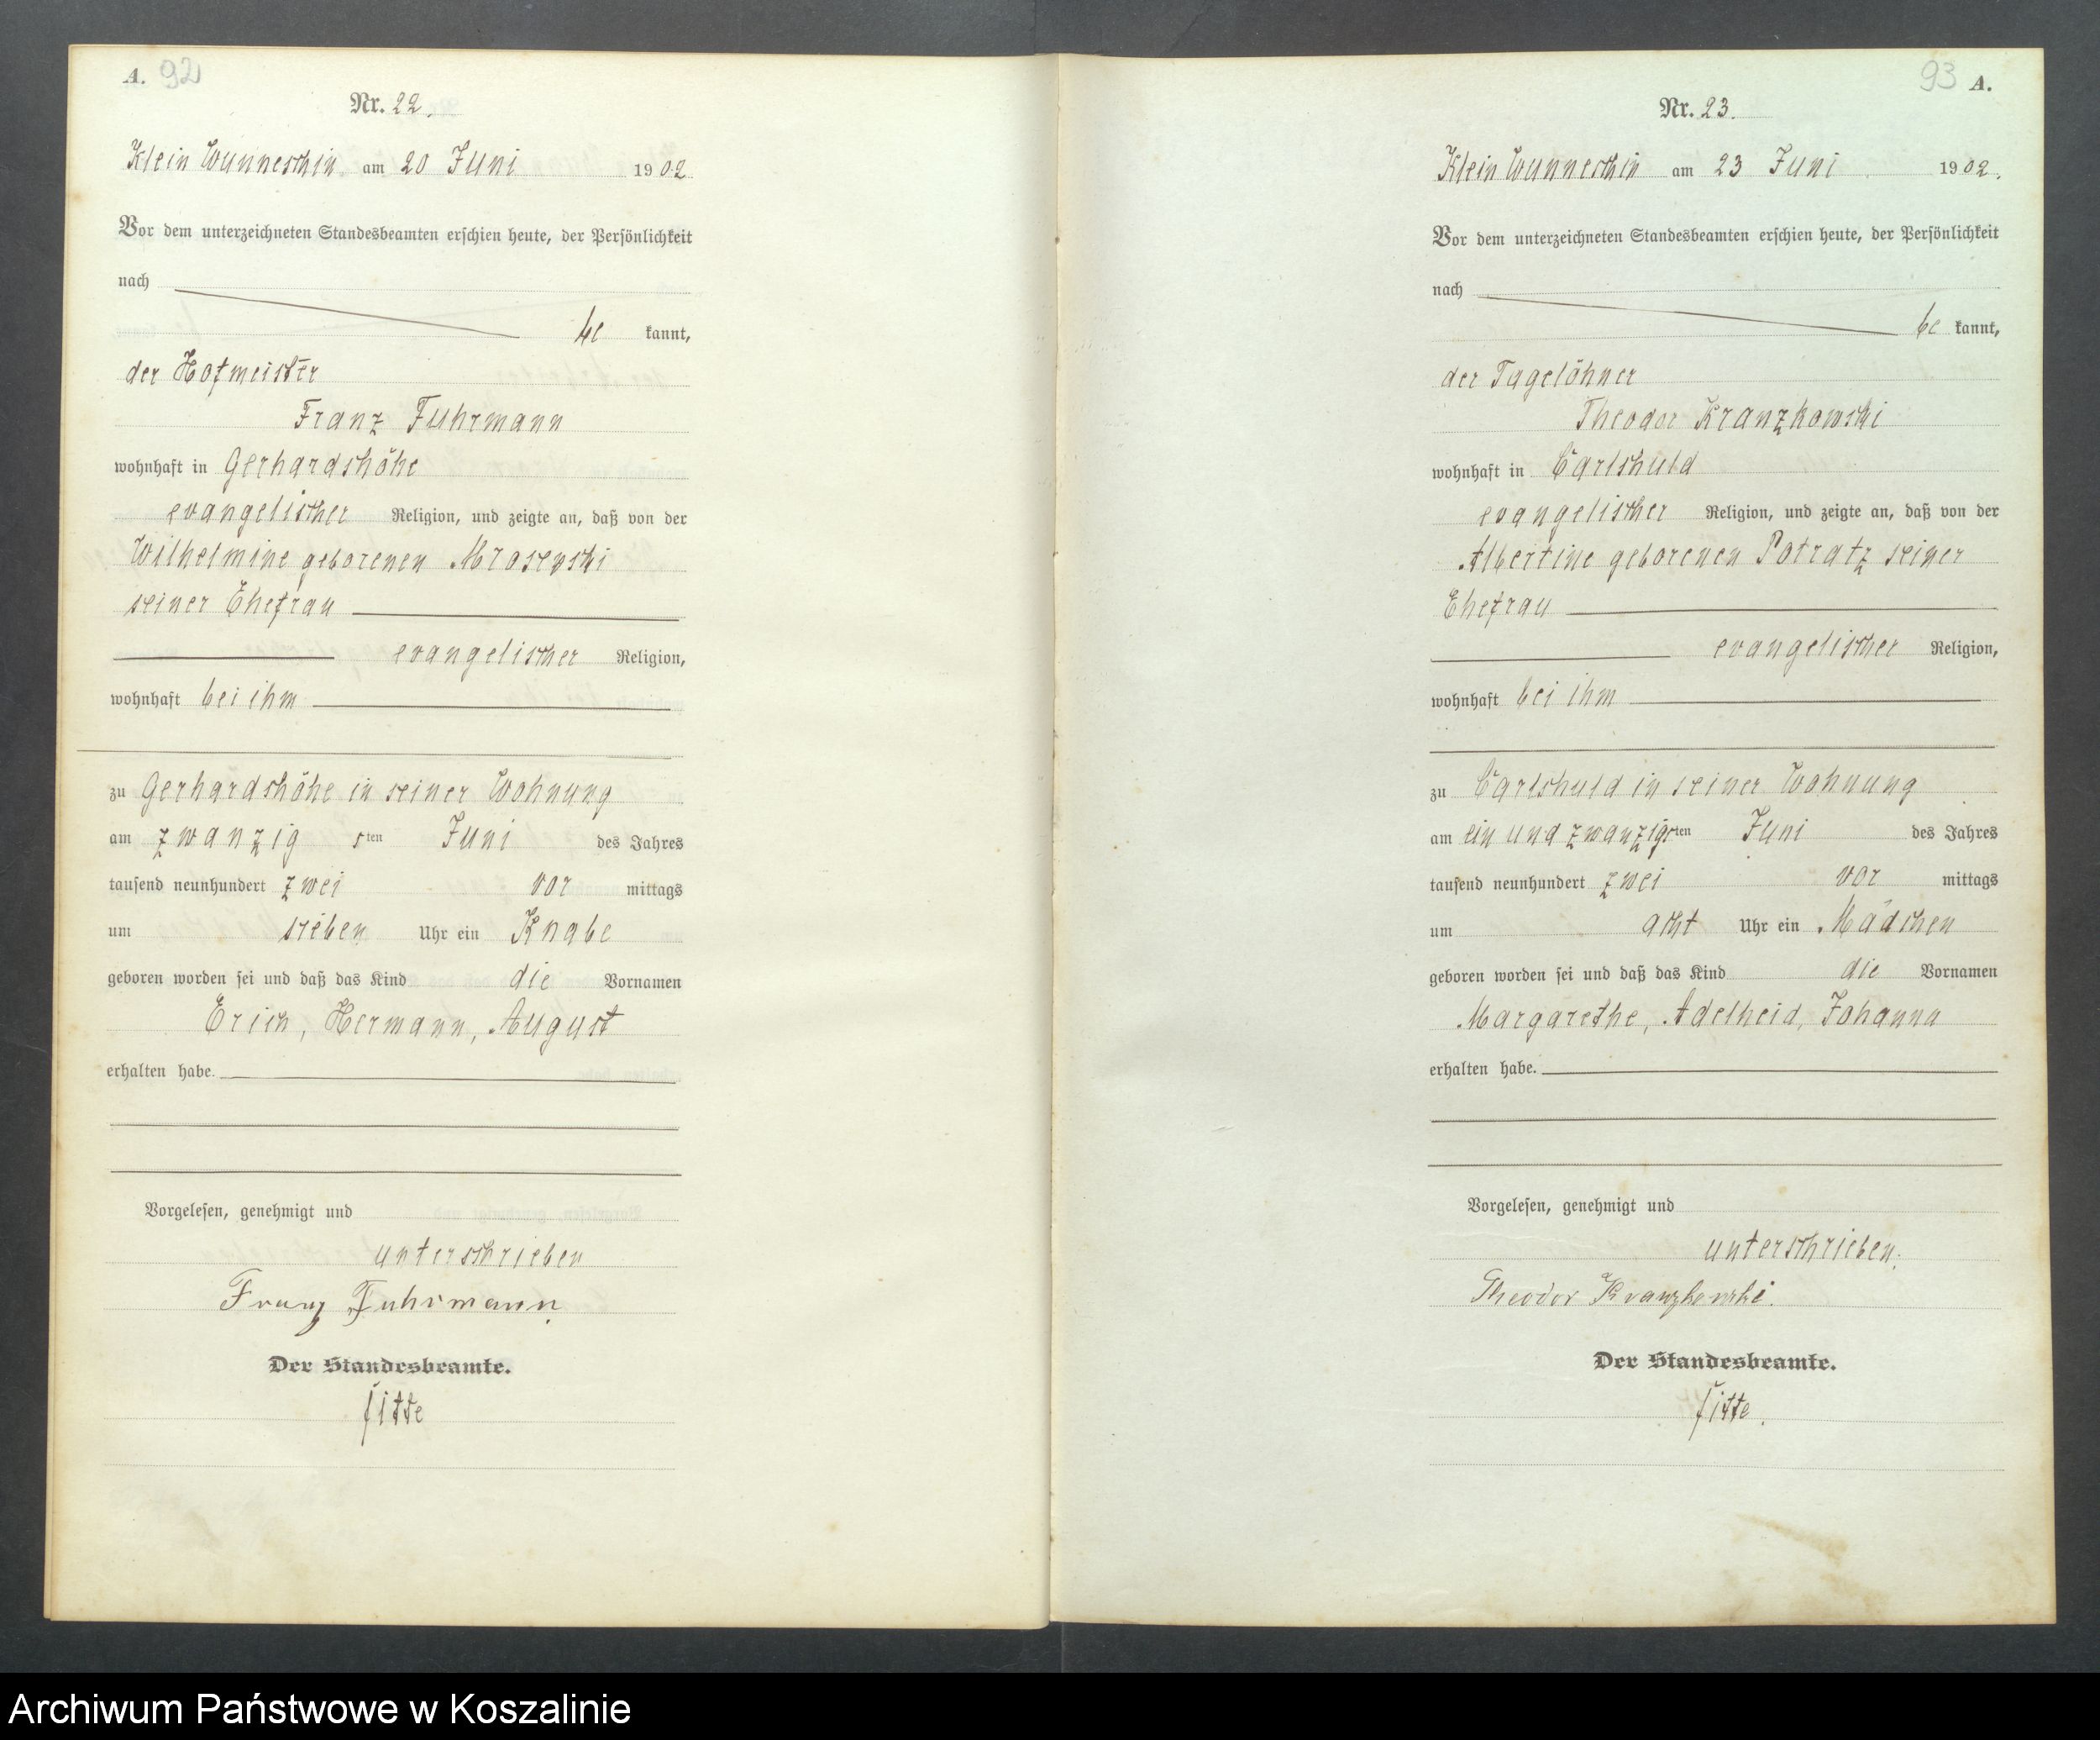 A. 92
Nr. 22.
Klein Wunneschin am 20 Juni 1902
Vor dem unterzeichneten Standesbeamten erschien heute, der Persönlichkeit
nach
be kannt,
der Hofmeister
Franz Fuhrmann
wohnhaft in Gerhardshöhe
evangelischer Religion, und zeigte an, daß von der
Wilhelmine geborenen Mrosewski
seiner Ehefrau
evangelischer Religion,
wohnhaft bei ihm
zu Gerhardshöhe in seiner Wohnung
am zwanzig sten Juni des Jahres
tausend neunhundert zwei vor mittags
um sieben Uhr ein Knabe
geboren worden sei und daß das Kind die Vornamen
Erich, Hermann, August
erhalten habe.
Vorgelesen, genehmigt und
unterschrieben
Franz Fuhrmann.
Der Standesbeamte.
93 A.
Nr. 23.
Klein Wunneschin am 23 Juni 1902.
Vor dem unterzeichneten Standesbeamten erschien heute, der Persönlichkeit
nach
be kannt,
der Tagelöhner
Theodor Kranzkowski
wohnhaft in Carlshuld
evangelischer Religion, und zeigte an, daß von der
Albertine geborenen Potratz seiner
Ehefrau
evangelischer Religion,
wohnhaft bei ihm
zu Carlshuld in seiner Wohnung
am ein und zwanzigsten Juni des Jahres
tausend neunhundert zwei vor mittags
um acht Uhr ein Mädchen
geboren worden sei und daß das Kind die Vornamen
Margarethe, Adelheid, Johanna
erhalten habe.
Vorgelesen, genehmigt und
unterschrieben.
Theodor Kranzkowski.
Der Standesbeamte.
Archiwum Państwowe w Koszalinie